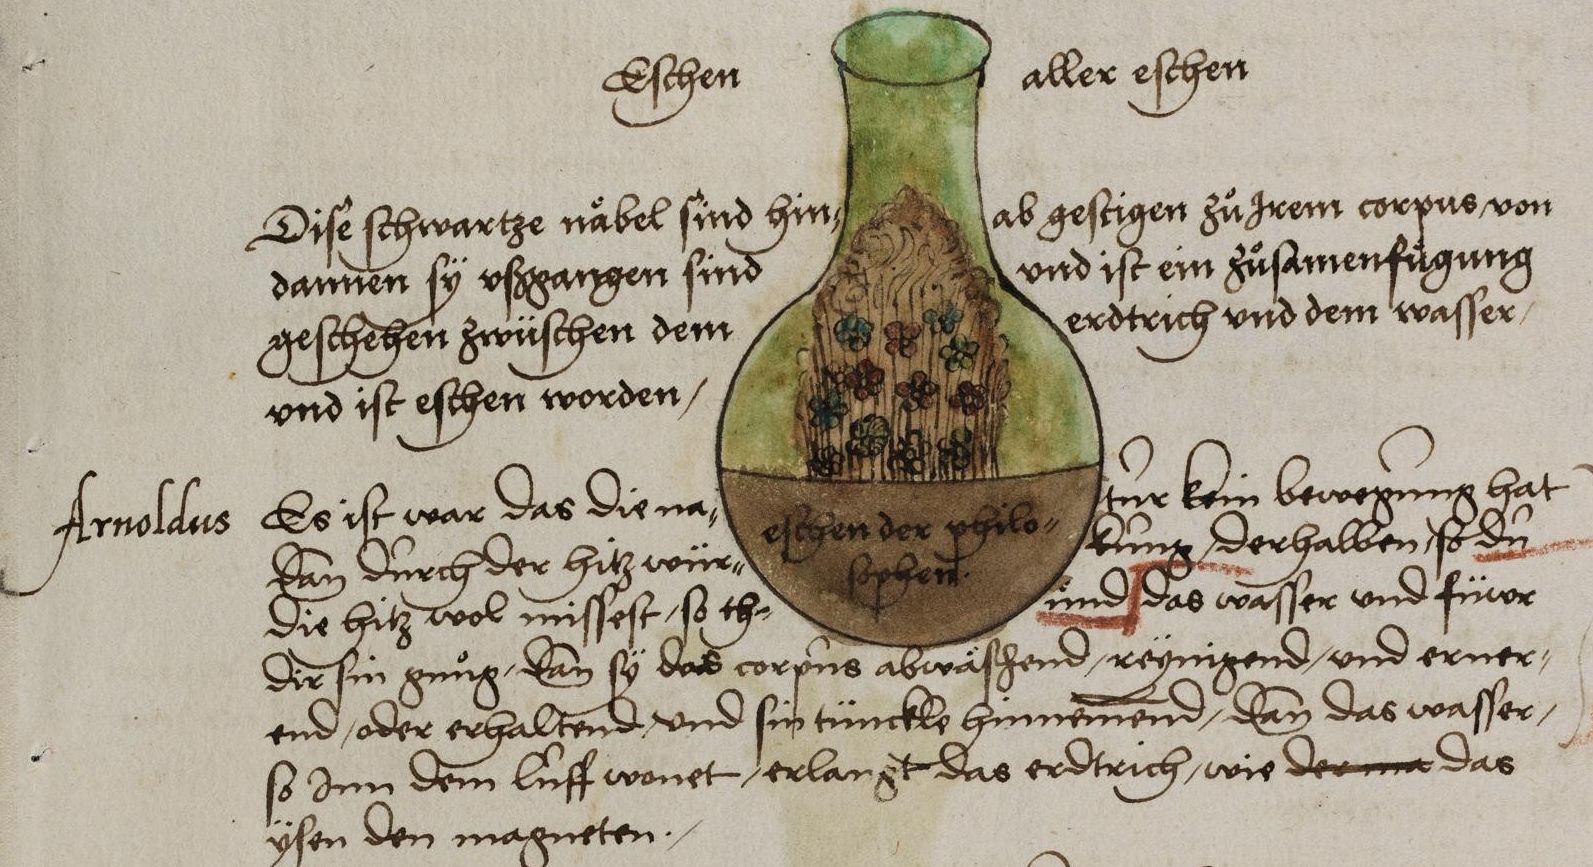 Eschen aller eschen
Dise schwartze nåbel sind hin= ab gestigen zů Irem corpus, von
dannen sÿ vßgangen sind vnd ist ein zůsamenfůgung
geschehen zwüschen dem erdtrich vnd dem wasser /
vnd ist eschen worden /
Arnoldus Es ist war das die na= tur kein bewegung hat
dan durch der hitz wür= kung / derhalben / so du
die hitz wol missest / so th= ünd das wasser vnd füwr
eschen der philo=
sophen.
dir sin gnůg / dan sÿ das corpus abwäschend / reÿnigend / vnd erner=
end / oder erhaltend / vnd sin tünckle hinnemend / dan das wasser /
so Inn dem lufft wonet / erlangt das erdtrich / wie der ma das
ÿsen den magneten. /